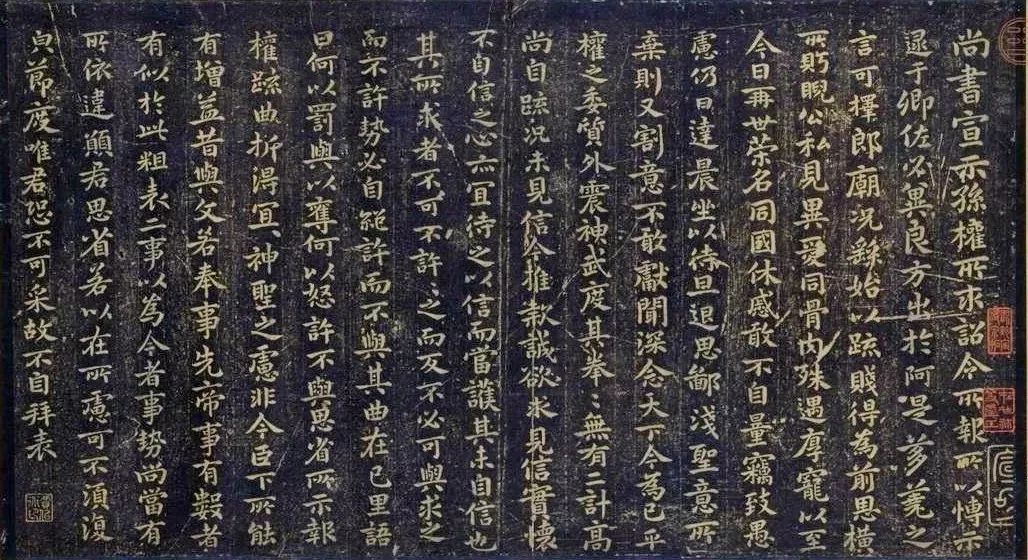 尚書宣示孫權所求詔令所報所以博示
逮于卿佐必冀良方出於阿是芻蕘之
言可擇郎廟況繇始以疏賤得為前思橫
所眄睨公私見異愛同骨肉殊遇厚寵以至
今日再世榮名同國休慼敢不自量竊致愚
慮仍日達晨坐以待旦退思鄙淺聖意所
棄則又割意不敢獻聞深念天下今為已平
權之委質外震神武度其拳〻無有二計高
尚自疏況未見信今推款誠欲求見信實懷
不自信之心亦宜待之以信而當護其未自信也
其所求者不可不許〻之而反不必可與求之
而不許勢必自絕許而不與其曲在己里語
曰何以罰與以奪何以怒許不與思省所示報
權疏曲折得宜〻神聖之慮非今臣下所能
有增益昔與文若奉事先帝事有數者
有似於此粗表二事以為今者事勢尚當有
所依違願君思省若以在所慮可不須復
貞節度唯君恐不可采故不自拜表